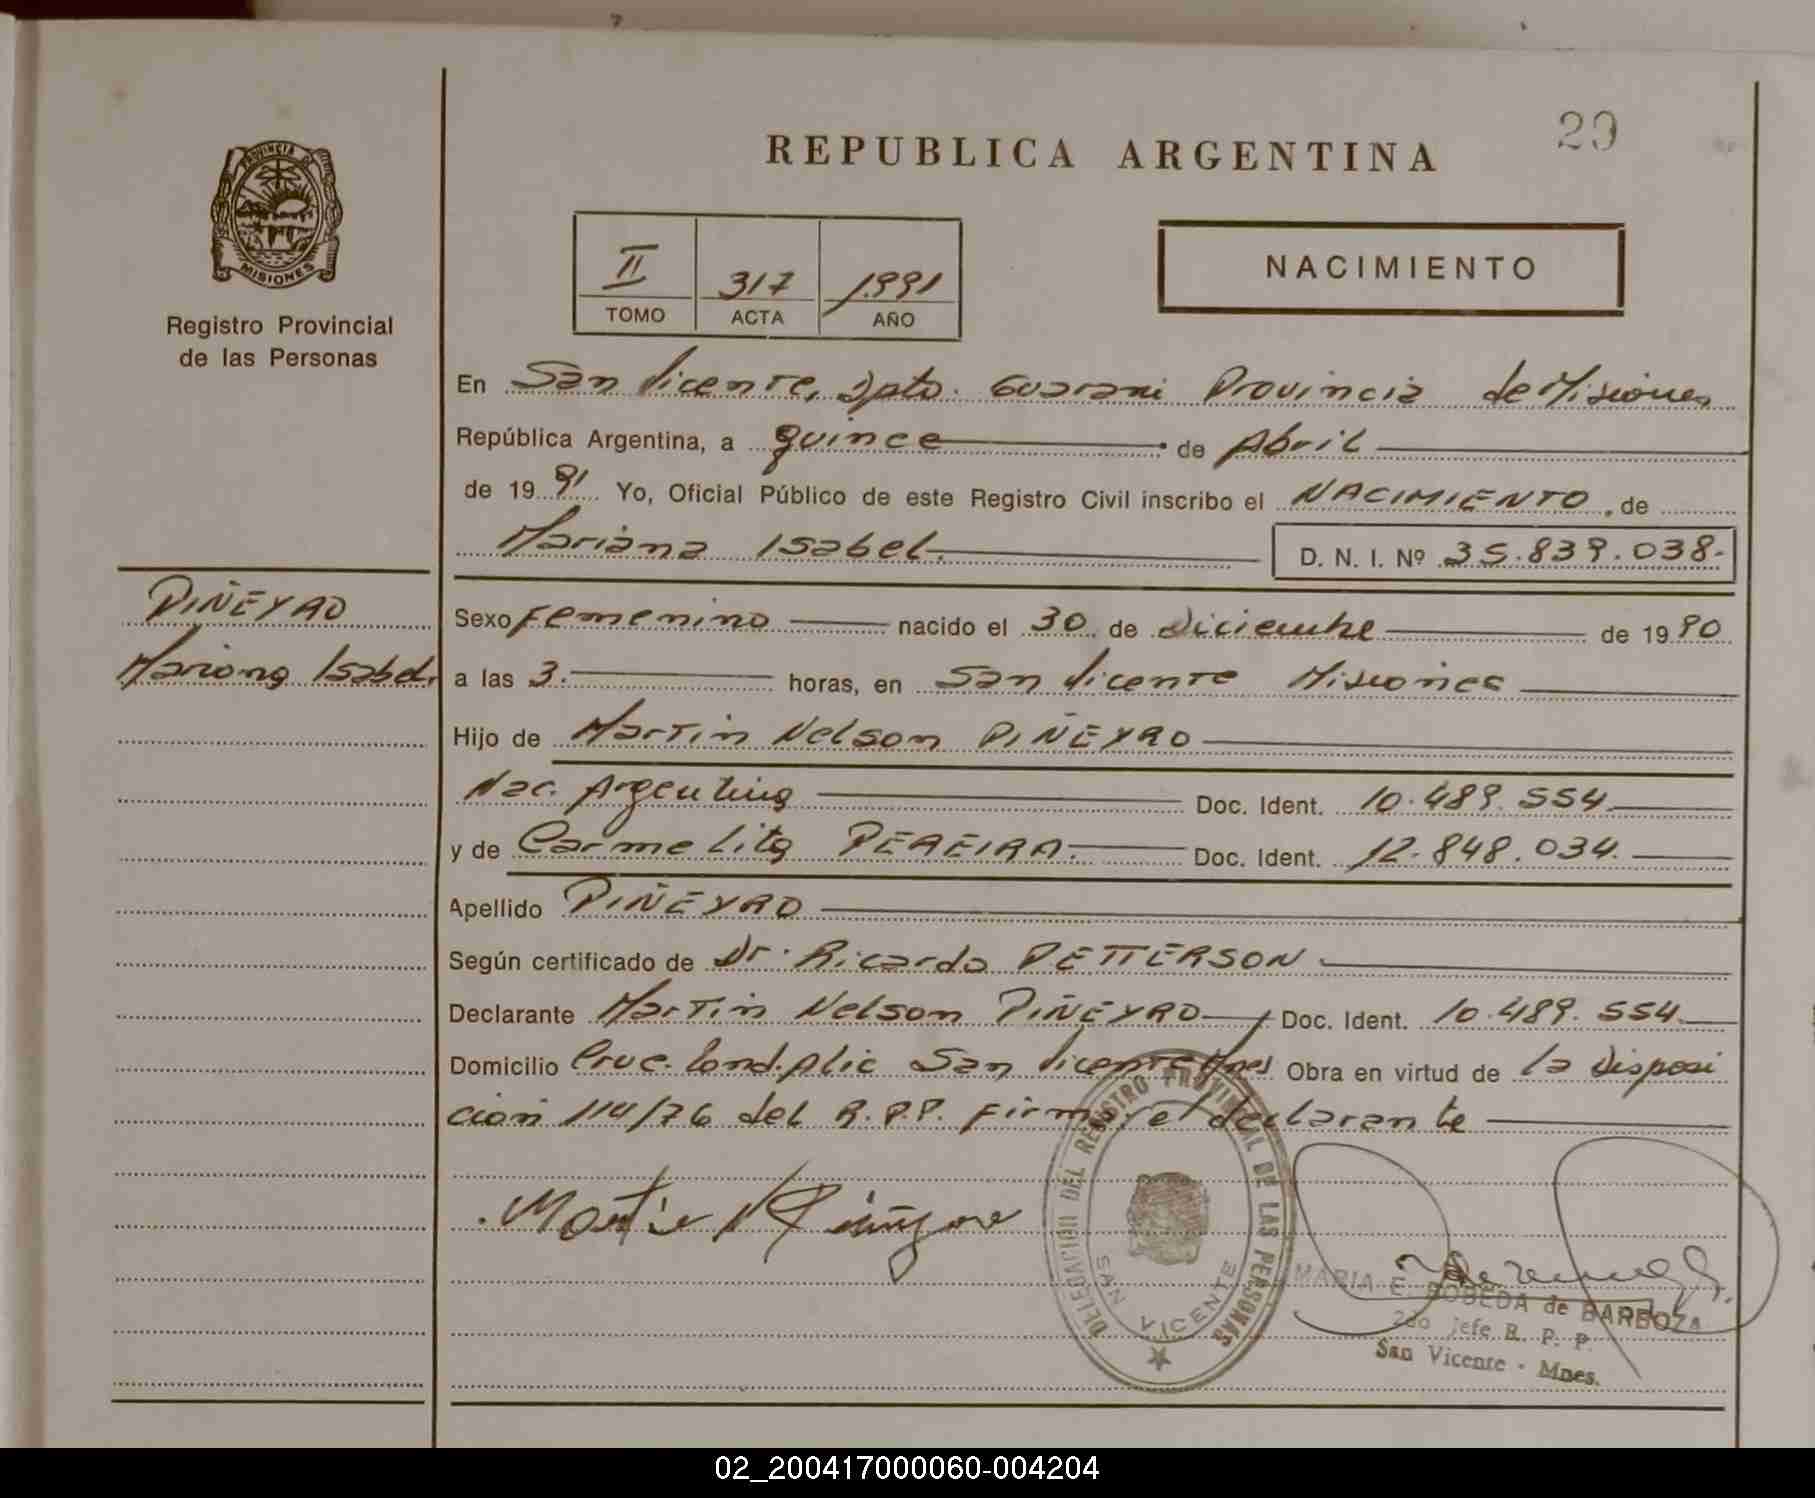 29
REPUBLICA ARGENTINA
PROVINCIA DE
MISIONES
Registro Provincial
de las Personas
II 317 1991
TOMO ACTA AÑO
NACIMIENTO
En San Vicente, Dpto. Guarani Provincia de Misiones
República Argentina, a quince de Abril
de 1991 Yo, Oficial Público de este Registro Civil inscribo el NACIMIENTO. de
Mariana Isabel. D. N. I. Nº 35.839.038-
PIÑEYRO
Mariana Isabel.
Sexo Femenino nacido el 30 de Diciembre de 1990
a las 3. horas, en San Vicente Misiones
Hijo de Martin Nelson PIÑEYRO
Nac. Argentina Doc. Ident. 10.489.554
y de Carmelita PEREIRA. Doc. Ident. 12.848.034.
Apellido PIÑEYRO
Según certificado de Dr. Ricardo PETTERSON
Declarante Martin Nelson PIÑEYRO Doc. Ident. 10.489.554
Domicilio San Vicente Mnes Obra en virtud de la Disposi
ción 114/76 del R.P.P. Firma, el declarante
DELEGACION DEL REGISTRO PROVINCIAL DE LAS PERSONAS
SAN VICENTE
MARIA E. BOBEDA de BARBOZA
2do Jefe R. P. P.
San Vicente - Mnes.
02_200417000060-004204